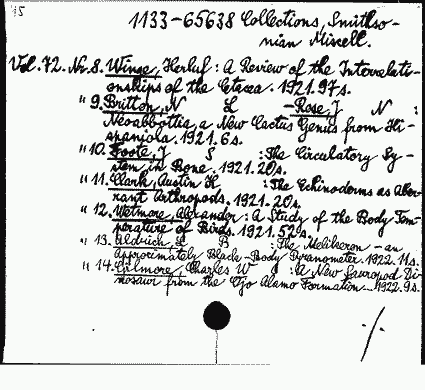 15
1133-65638 Collections, Smithso-
nian Miscell.
Vol. 72. Nr. 8. Winge, Herluf: A Review of the Interrelati-
onships of the Cetacea. 1921. 97 s.
" 9. Britton, N L -Rose, J N :
Neoabbottia, a New Cactus Genus from Hi-
spaniola. 1921. 6 s.
" 10. Foote, J S : The Circulatory Sy-
stem in Bone. 1921. 20 s.
" 11. Clark, Austin H : The Echinoderms as Aber-
rant Arthropods. 1921. 20 s.
" 12. Wetmore, Alexander: A Study of the Body Tem-
perature of Birds. 1921. 52 s.
" 13. Aldrich, L B : The Melikeron - an
Approximately Black-Body Pyranometer. 1922. 11 s.
" 14. Gilmore, Charles W : A New Sauropod Di-
nosaur from the Ojo Alamo Formation. 1922. 9 s.
./.